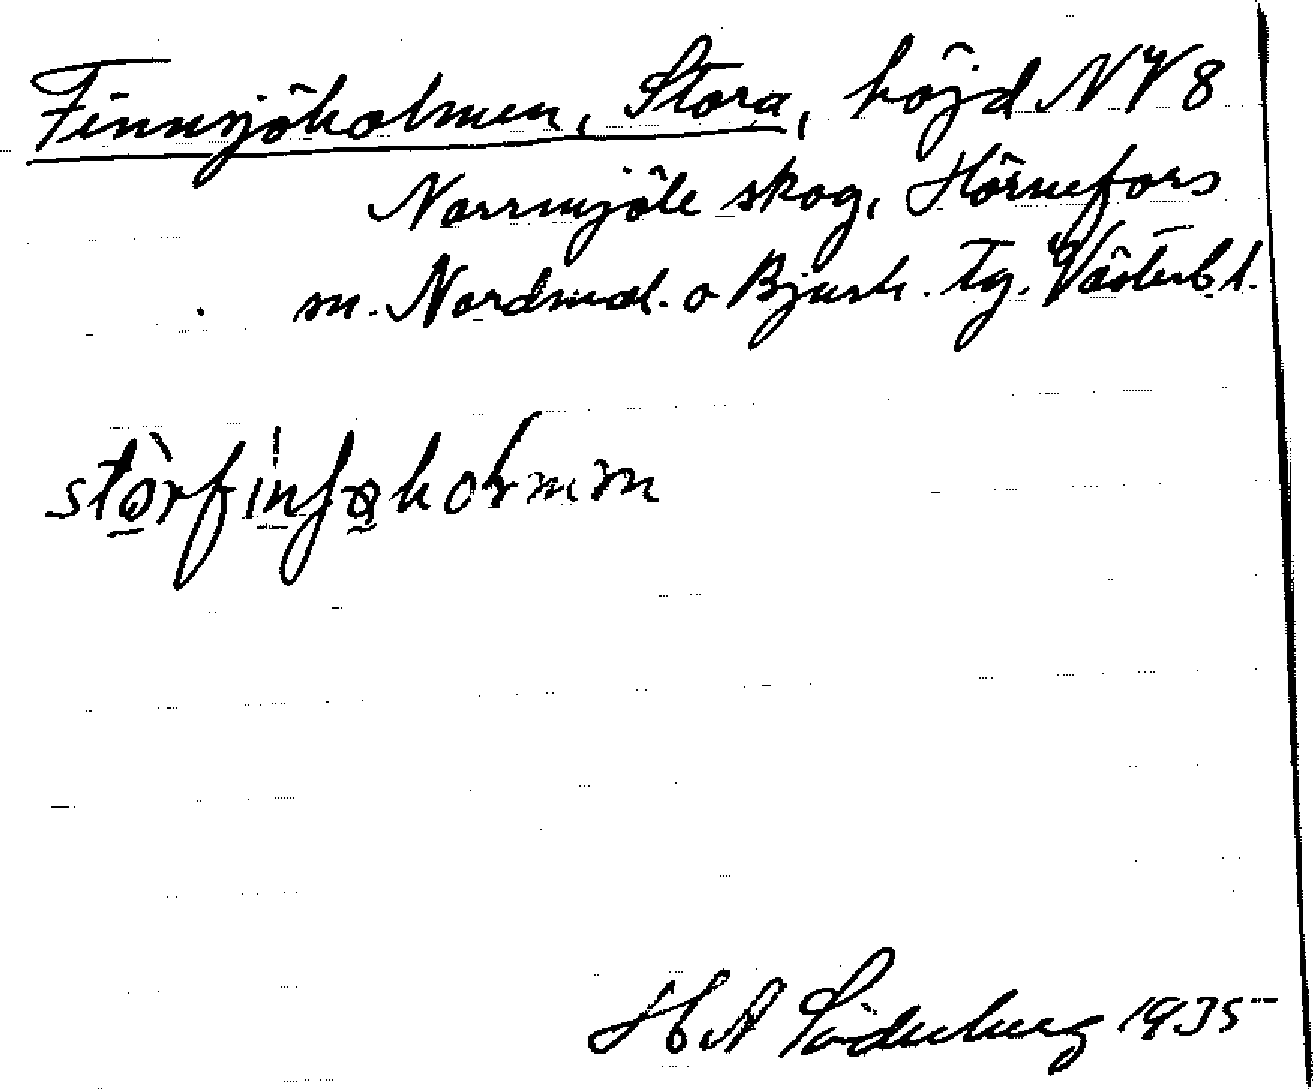 Finnsjöholmen, Stora, höjd NV 8
Norrmjöle skog, Hörnefors
sn. Nordmal. o Bjurh. tg. Västerb. l.
H A Söderberg 1935